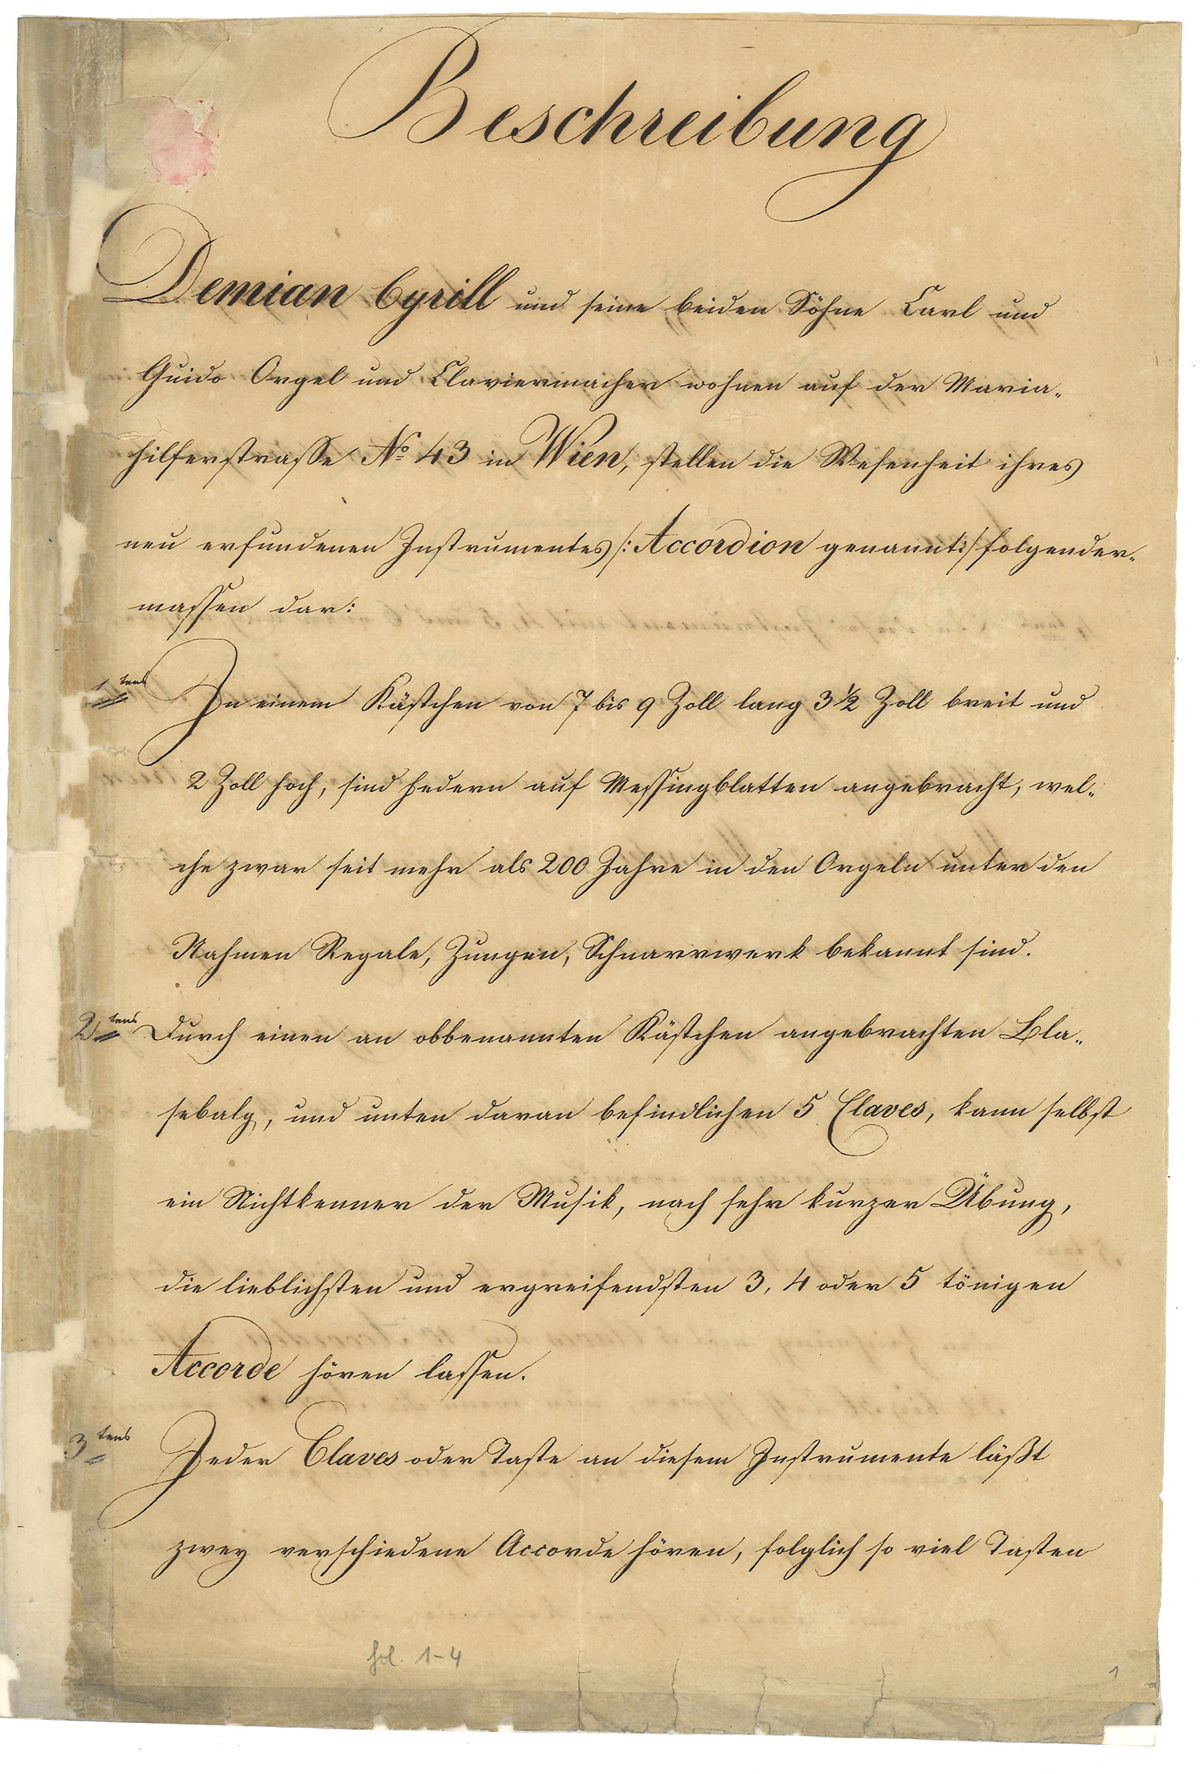 Beschreibung
Demian Cyrill und seine beiden Söhne Carl und
Guido Orgel und Claviermacher wohnen auf der Maria-
hilferstrasse No 43 in Wien, stellen die Wesenheit ihres
neu erfundenen Instrumentes /: Accordion genannt :/ folgender-
massen dar:
1tens In einem Kästchen von 7 bis 9 Zoll lang 3 ½ Zoll breit und
2 Zoll hoch, sind Federn auf Messingblatten angebracht, wel-
che zwar seit mehr als 200 Jahre in den Orgeln unter den
Nahmen Regale, Zungen, Schnarrwerk bekannt sind.
2tens Durch einen an obbenannten Kästchen angebrachten Bla-
sebalg, und unten daran befindlichen 5 Claves, kann selbst
ein Nichtkenner der Musik, nach sehr kurzer Übung,
die lieblichsten und ergreifendsten 3, 4 oder 5 tönigen
Accorde hören lassen.
3tens Jeder Claves oder Taste an diesem Instrumente läßt
zwey verschiedene Accorde hören, folglich so viel Tasten
fol. 1-4
1